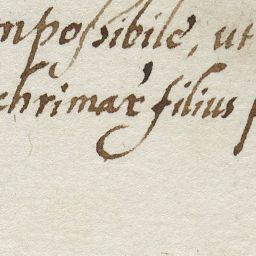 mpossibile, ut
chrimar̃ filius